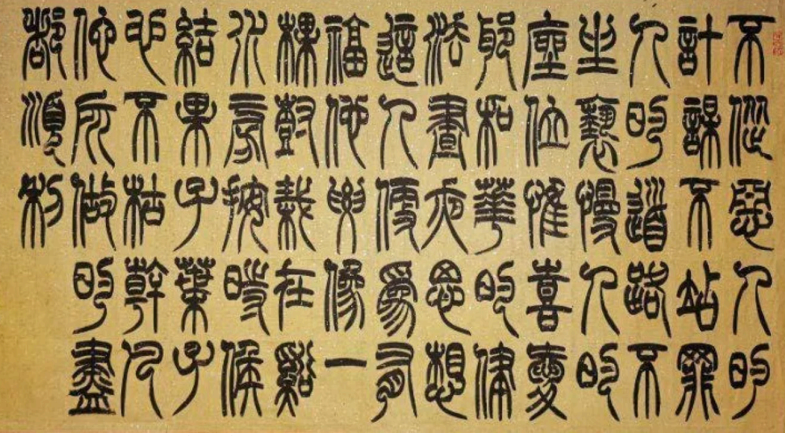 不從惡人的
計謀不站罪
人的道路不
坐褻慢人的
座位惟喜愛
耶和華的律
法晝夜思想
這人便爲有
福他要像一
棵樹栽在谿
水旁按時候
結果子葉子
也不枯幹凡
他所做的盡
都順利